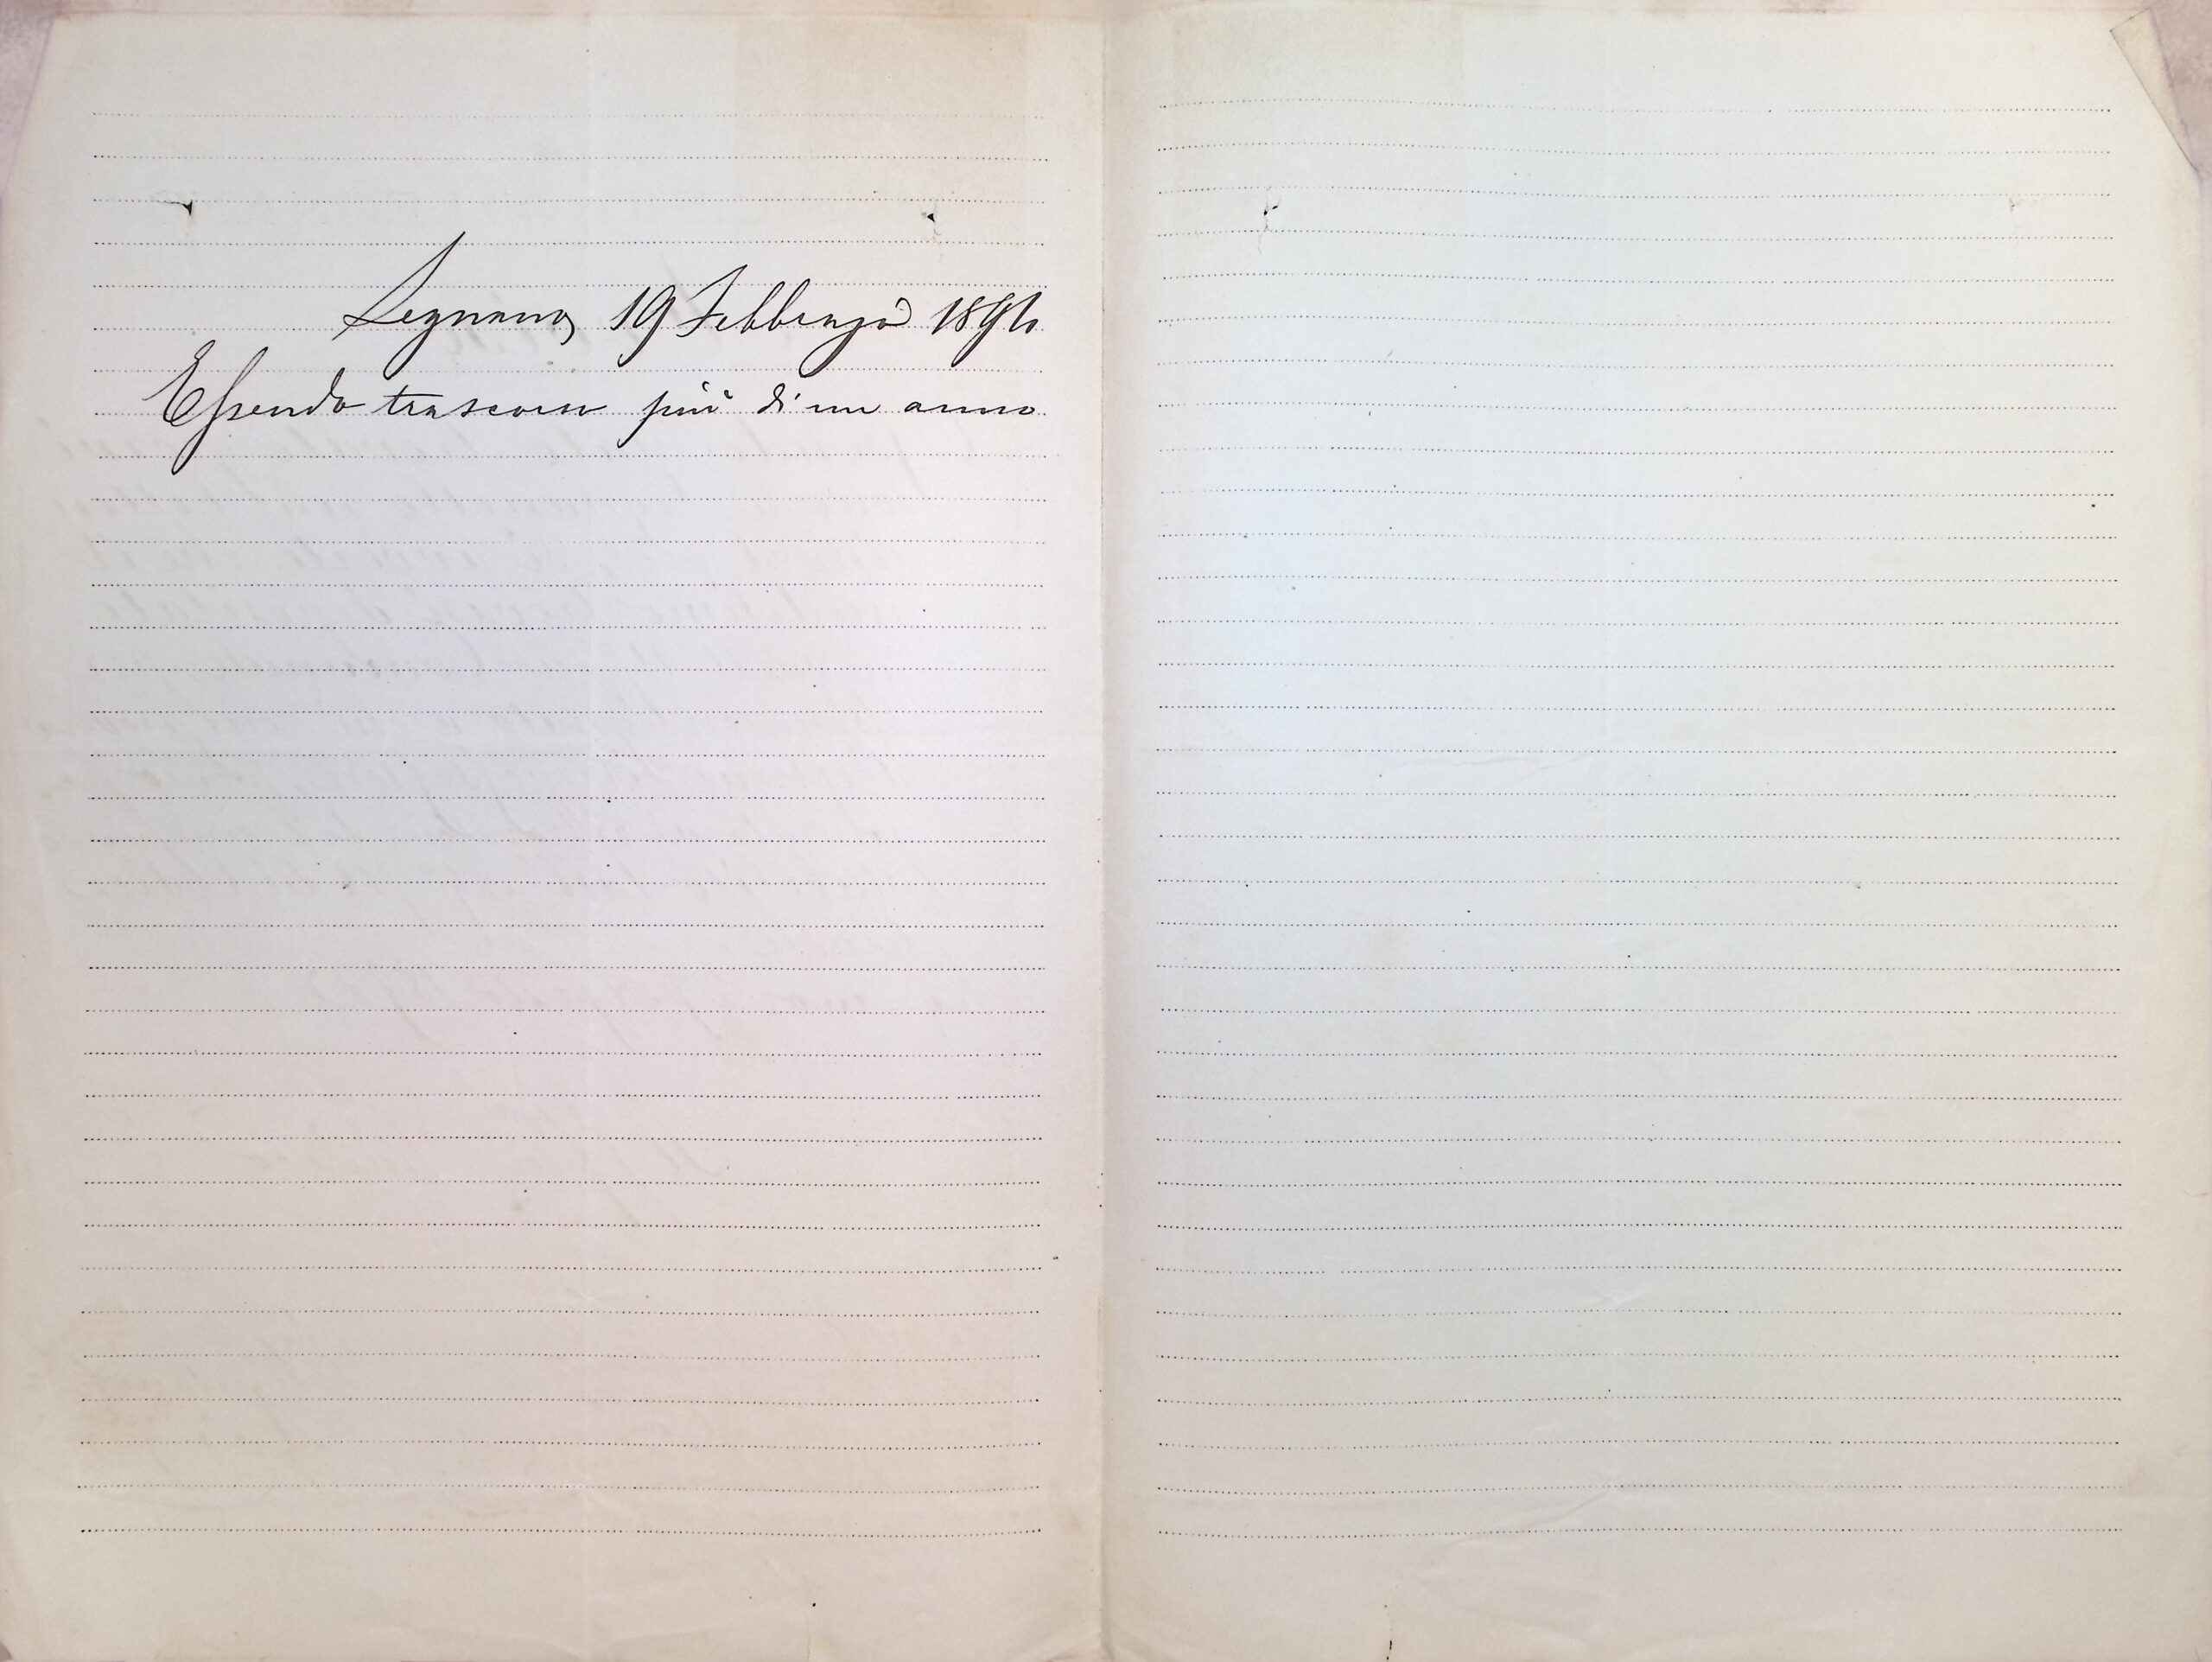 Legnano, 19 Febbrajo 1896
Essendo trascorso più di un anno